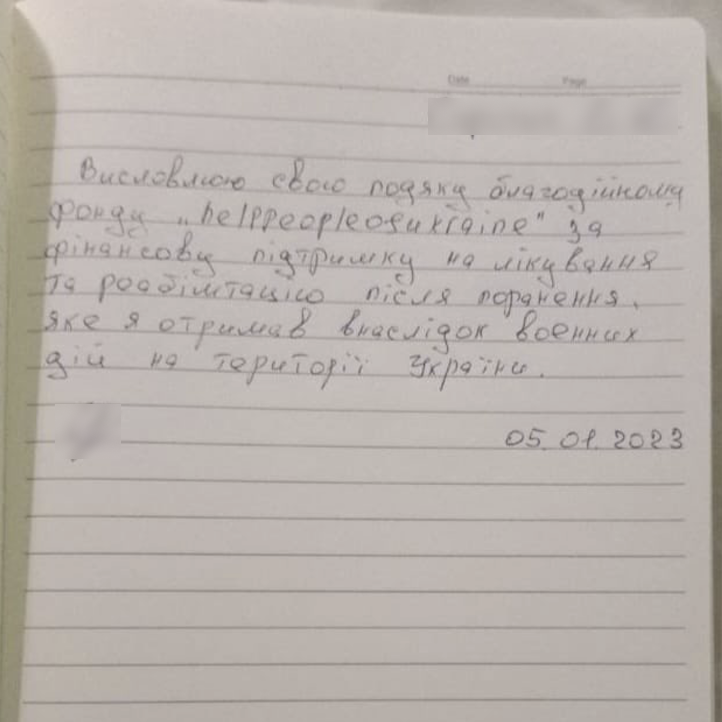 Date Page
Висловлюю свою подяку благодійному
фонду „helppeopleosukraine" за
фінансову підтримку на лікування
та рообілітацію після поранення,
яке я отримав внаслідок воєнних
дій на території України.
05.01.2023